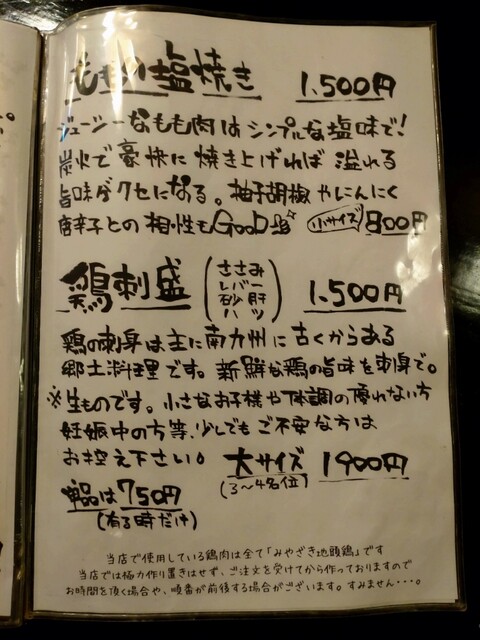 ももの塩焼き 1,500円
ジューシーなもも肉はシンプルな塩味で!
炭火で豪快に焼き上げれば溢れる
旨味ダクセになる。柚子胡椒やにんにく
唐辛子との相性もGOOD 小サイズ 800円
鶏刺盛 (ささみ レバー 砂肝 ハツ) 1,500円
鶏の刺身は主に南九州に古くからある
郷土料理です。新鮮な鶏の旨味を刺身で。
※生ものです。小さなお子様や体調の優れない方
妊娠中の方等、少しでもご不安な方は
お控え下さい。 大サイズ 1900円
(3〜4名位)
単品は750円
(有る時だけ)
当店で使用している鶏肉は全て「みやざき地頭鶏」です
当店では極力作り置きはせず、ご注文を受けてから作っておりますので
お時間を頂く場合や、順番が前後する場合がございます。すみません・・・。